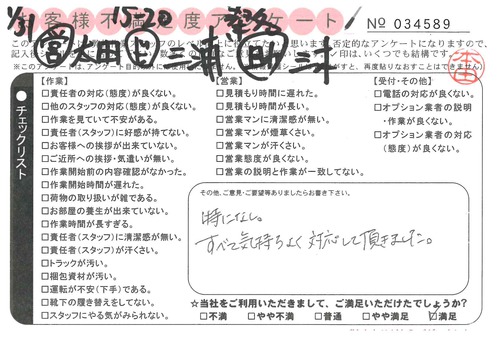 お客様不満足度アンケート
№ 034589
1/31 15-20
営 太田 三井 三井
チェックリスト
【作業】
□責任者の対応(態度)が良くない。
□他のスタッフの対応(態度)が良くない。
□作業を見ていて不安がある。
□責任者(スタッフ)に好感が持てない。
□お客様への挨拶が出来ていない。
□ご近所への挨拶・気遣いが無い。
□作業開始前の内容確認がなかった。
□作業開始時間が遅れた。
□荷物の取り扱いが雑である。
□お部屋の養生が出来ていない。
□作業時間が長すぎる。
□責任者(スタッフ)に清潔感が無い。
□責任者(スタッフ)が汗くさい。
□トラックが汚い。
□梱包資材が汚い。
□運転が不安(下手)である。
□靴下の履き替えをしてない。
□スタッフにやる気がみられない。
【営業】
□見積もり時間に遅れた。
□見積もり時間が長い。
□営業マンに清潔感が無い。
□営業マンが煙草くさい。
□営業マンが汗くさい。
□営業態度が良くない。
□営業の説明と作業が一致してない。
【受付・その他】
□電話の対応が良くない。
□オプション業者の説明
・作業が良くない。
□オプション業者の対応
(態度)が良くない。
その他、ご意見・ご要望等ありましたらお書き下さい。
特になし。
すべて気持ちよく対応して頂きました。
☆当社をご利用いただきまして、ご満足いただけてしょうか?
□不満 □やや不満 □普通 □やや満足 ☑満足